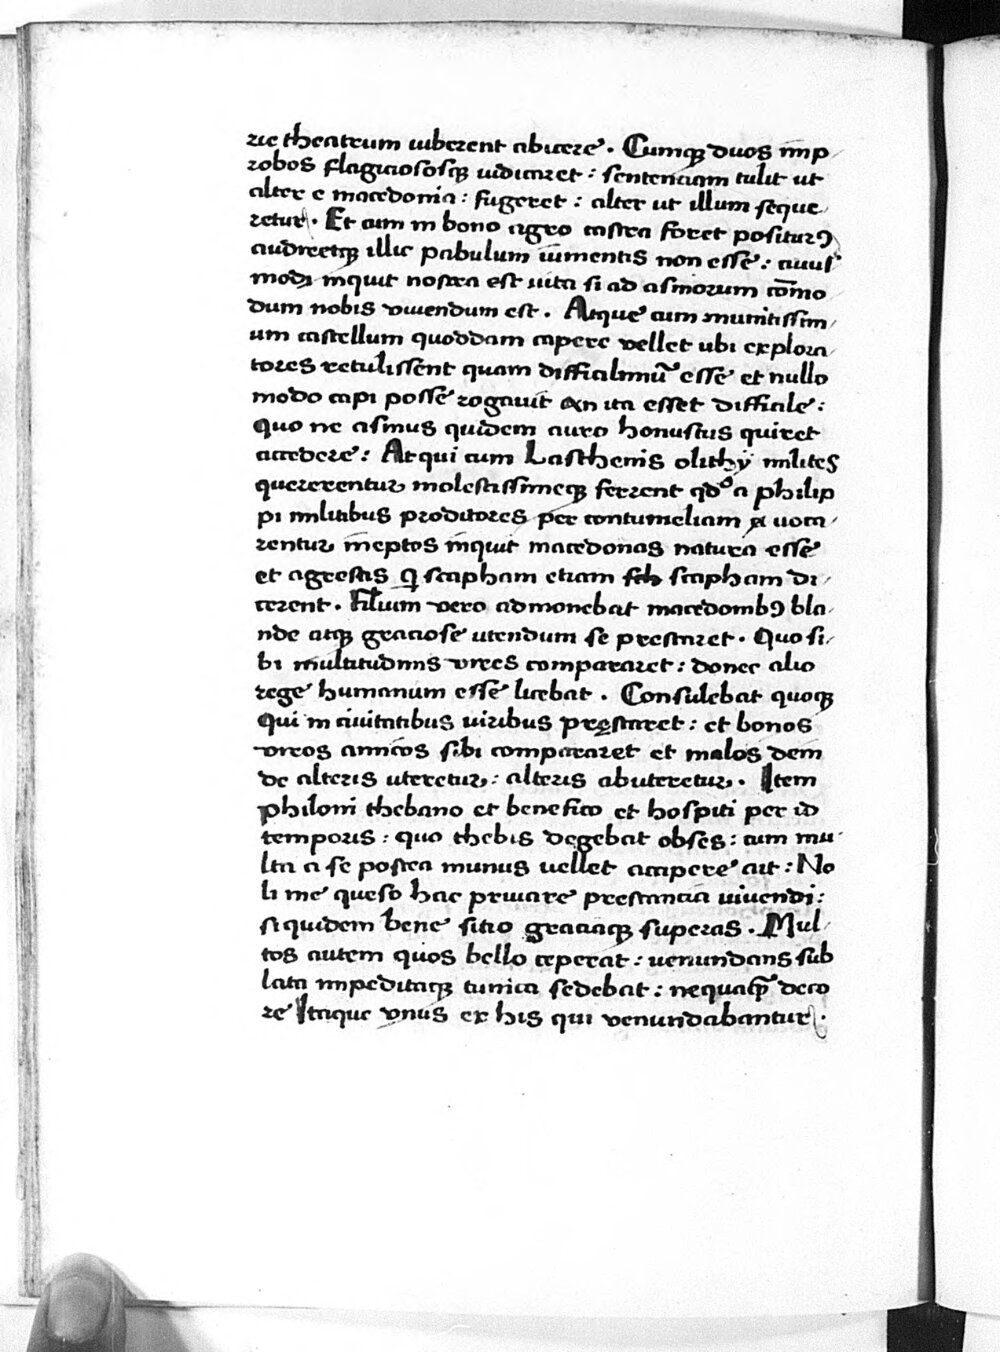 rie theatrum iuberent abicere. Cumqꝫ duos imp/
robos flagiciososqꝫ iudicaret: sentenciam tulit ut
alter e macedonia: fugeret: alter ut illum seque/
retur. Et cum in bono agro castra foret positurꝰ
audiretqꝫ illic pabulum iumentis non esse: cuius
modi inquit nostra est uita si ad asinorum com̄o
dum nobis viuendum est. Atque cum munitissim/
um castellum quoddam capere vellet ubi explora/
tores retulissent quam difficilimū esse et nullo
modo capi posse rogauit an ita esset difficile:
quo ne asinus quidem auro honustus quiret
accedere: At qui cum Lasthenis olithÿ milites
quererentur molestissimeqꝫ ferrent qdͦ a philip
pi militibus proditores per contumeliam uoca/
rentur ineptos inquit macedonas natura esse
et agrestis qͥ scapham etiam scapham di/
cerent. Filium vero admonebat macedonibꝰ bla/
nde atqꝫ graciose utendum se prestaret. Quo si/
bi multitudinis vires compararet: donec alio
rege humanum esse licebat. Consulebat quoqꝫ
qui in ciuitatibus uiribus pręstaret: et bonos
viros amicos sibi compararet et malos dein
de alteris uteretur: alteris abuteretur. Item
philoni thebano et benefico et hospiti per id
temporis: quo thebis degebat obses: cum mu/
lta a se postea munus uellet accipere ait: No
li me queso hac priuare prestancia uiuendi:
siquidem bene sitio graciaqꝫ superas. Mul/
tos autem quos bello ceperat: uenundans sub
lata impeditaqꝫ tunica sedebat: nequaqͣ͂ deco
re Itaque vnus ex his qui venundabantur.